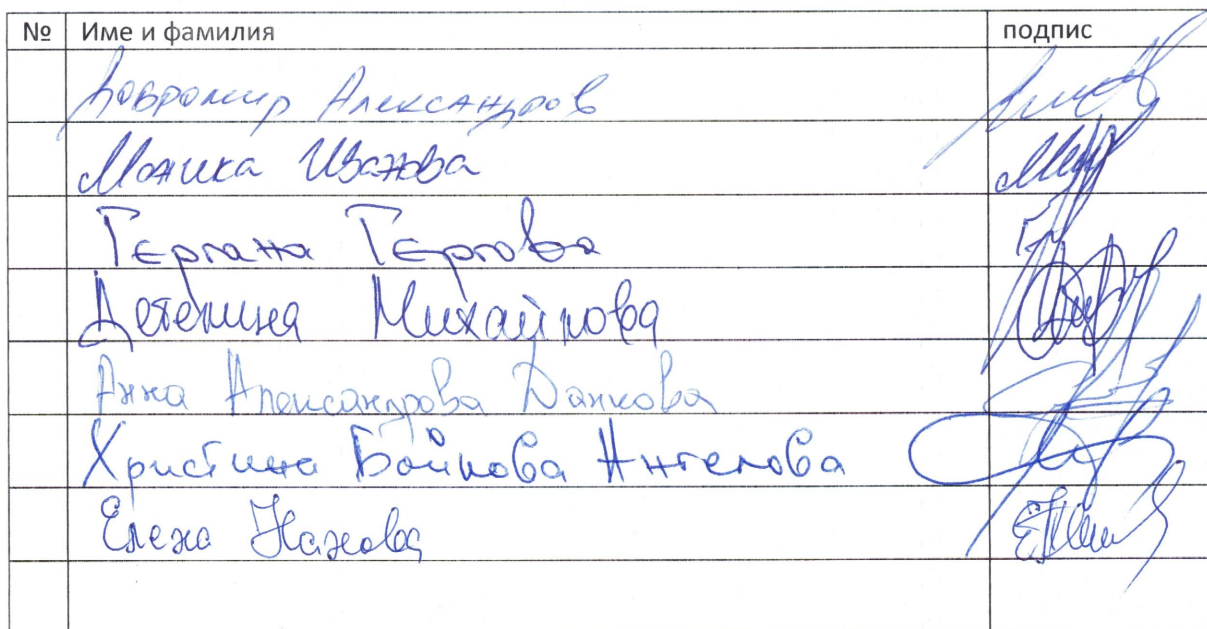 № Име и фамилия подпис
Добромир Александров
Моника Иванова
Гергана Гергова
Детелина Михайлова
Анна Александрова Данкова
Христина Бойкова Ангелова
Елена Нанова